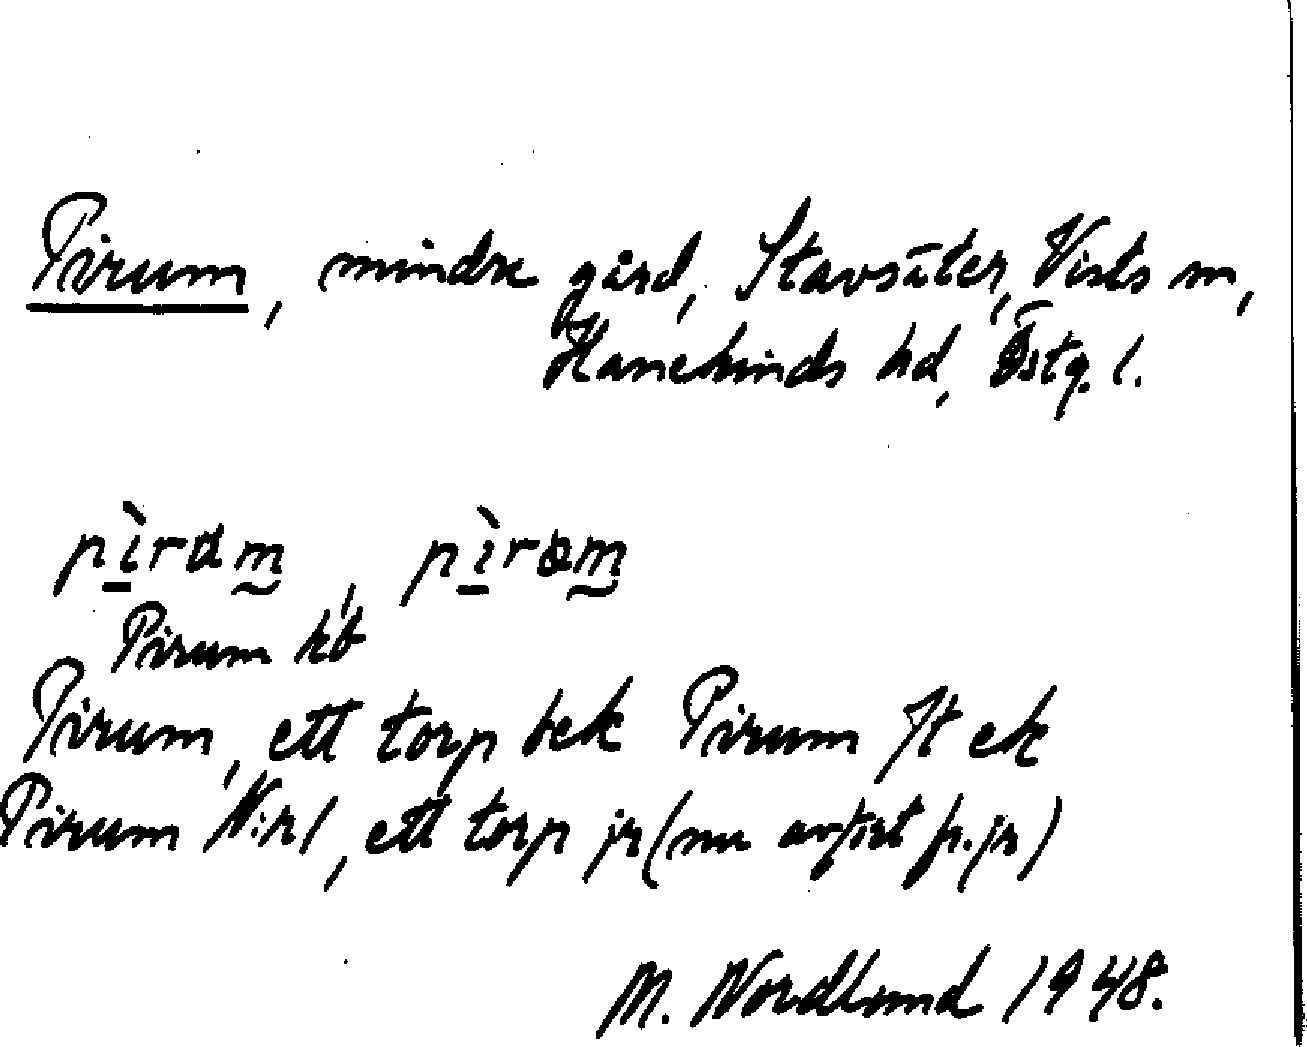 Pirum, mindre gård, Stavsäter, Vists sn,
Hanekinds hd, Östg. l.
pìrɑm, pìrəm
Pirum kb
Pirum, ett torp bek Pirum Jt ek
Pirum N:r 1, ett torp jr (nu avfört fr. jr)
M. Nordlund 1948.